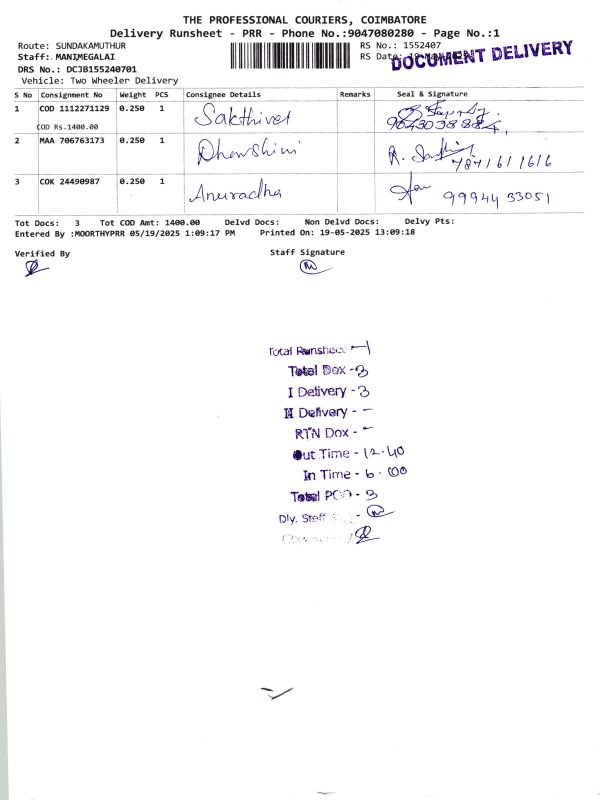 THE PROFESSIONAL COURIERS, COIMBATORE
Delivery Runsheet - PRR - Phone No.:9047080280 - Page No.:1
Route: SUNDAKAMUTHUR
RS No.: 1552407
Staff: MANIMEGALAI
RS Date:
DOCUMENT DELIVERY
DRS No.: DCJB155240701
Vehicle: Two Wheeler Delivery
S No Consignment No Weight PCS Consignee Details Remarks Seal & Signature
1 COD 1112271129 0.250 1 Sakthivel
COD Rs.1400.00
2 MAA 706763173 0.250 1 Dhanshini
3 COK 24490987 0.250 1 Anuradha 99944 33051
Tot Docs: 3 Tot COD Amt: 1400.00 Delvd Docs: Non Delvd Docs: Delvy Pts:
Entered By :MOORTHYPRR 05/19/2025 1:09:17 PM Printed On: 19-05-2025 13:09:18
Verified By Staff Signature
Total Runsheet - 1
Total Dox - 3
I Delivery - 3
II Delivery - -
RTN Dox - -
Out Time - 12.40
In Time - 6.00
Total POD - 3
Dly. Staff